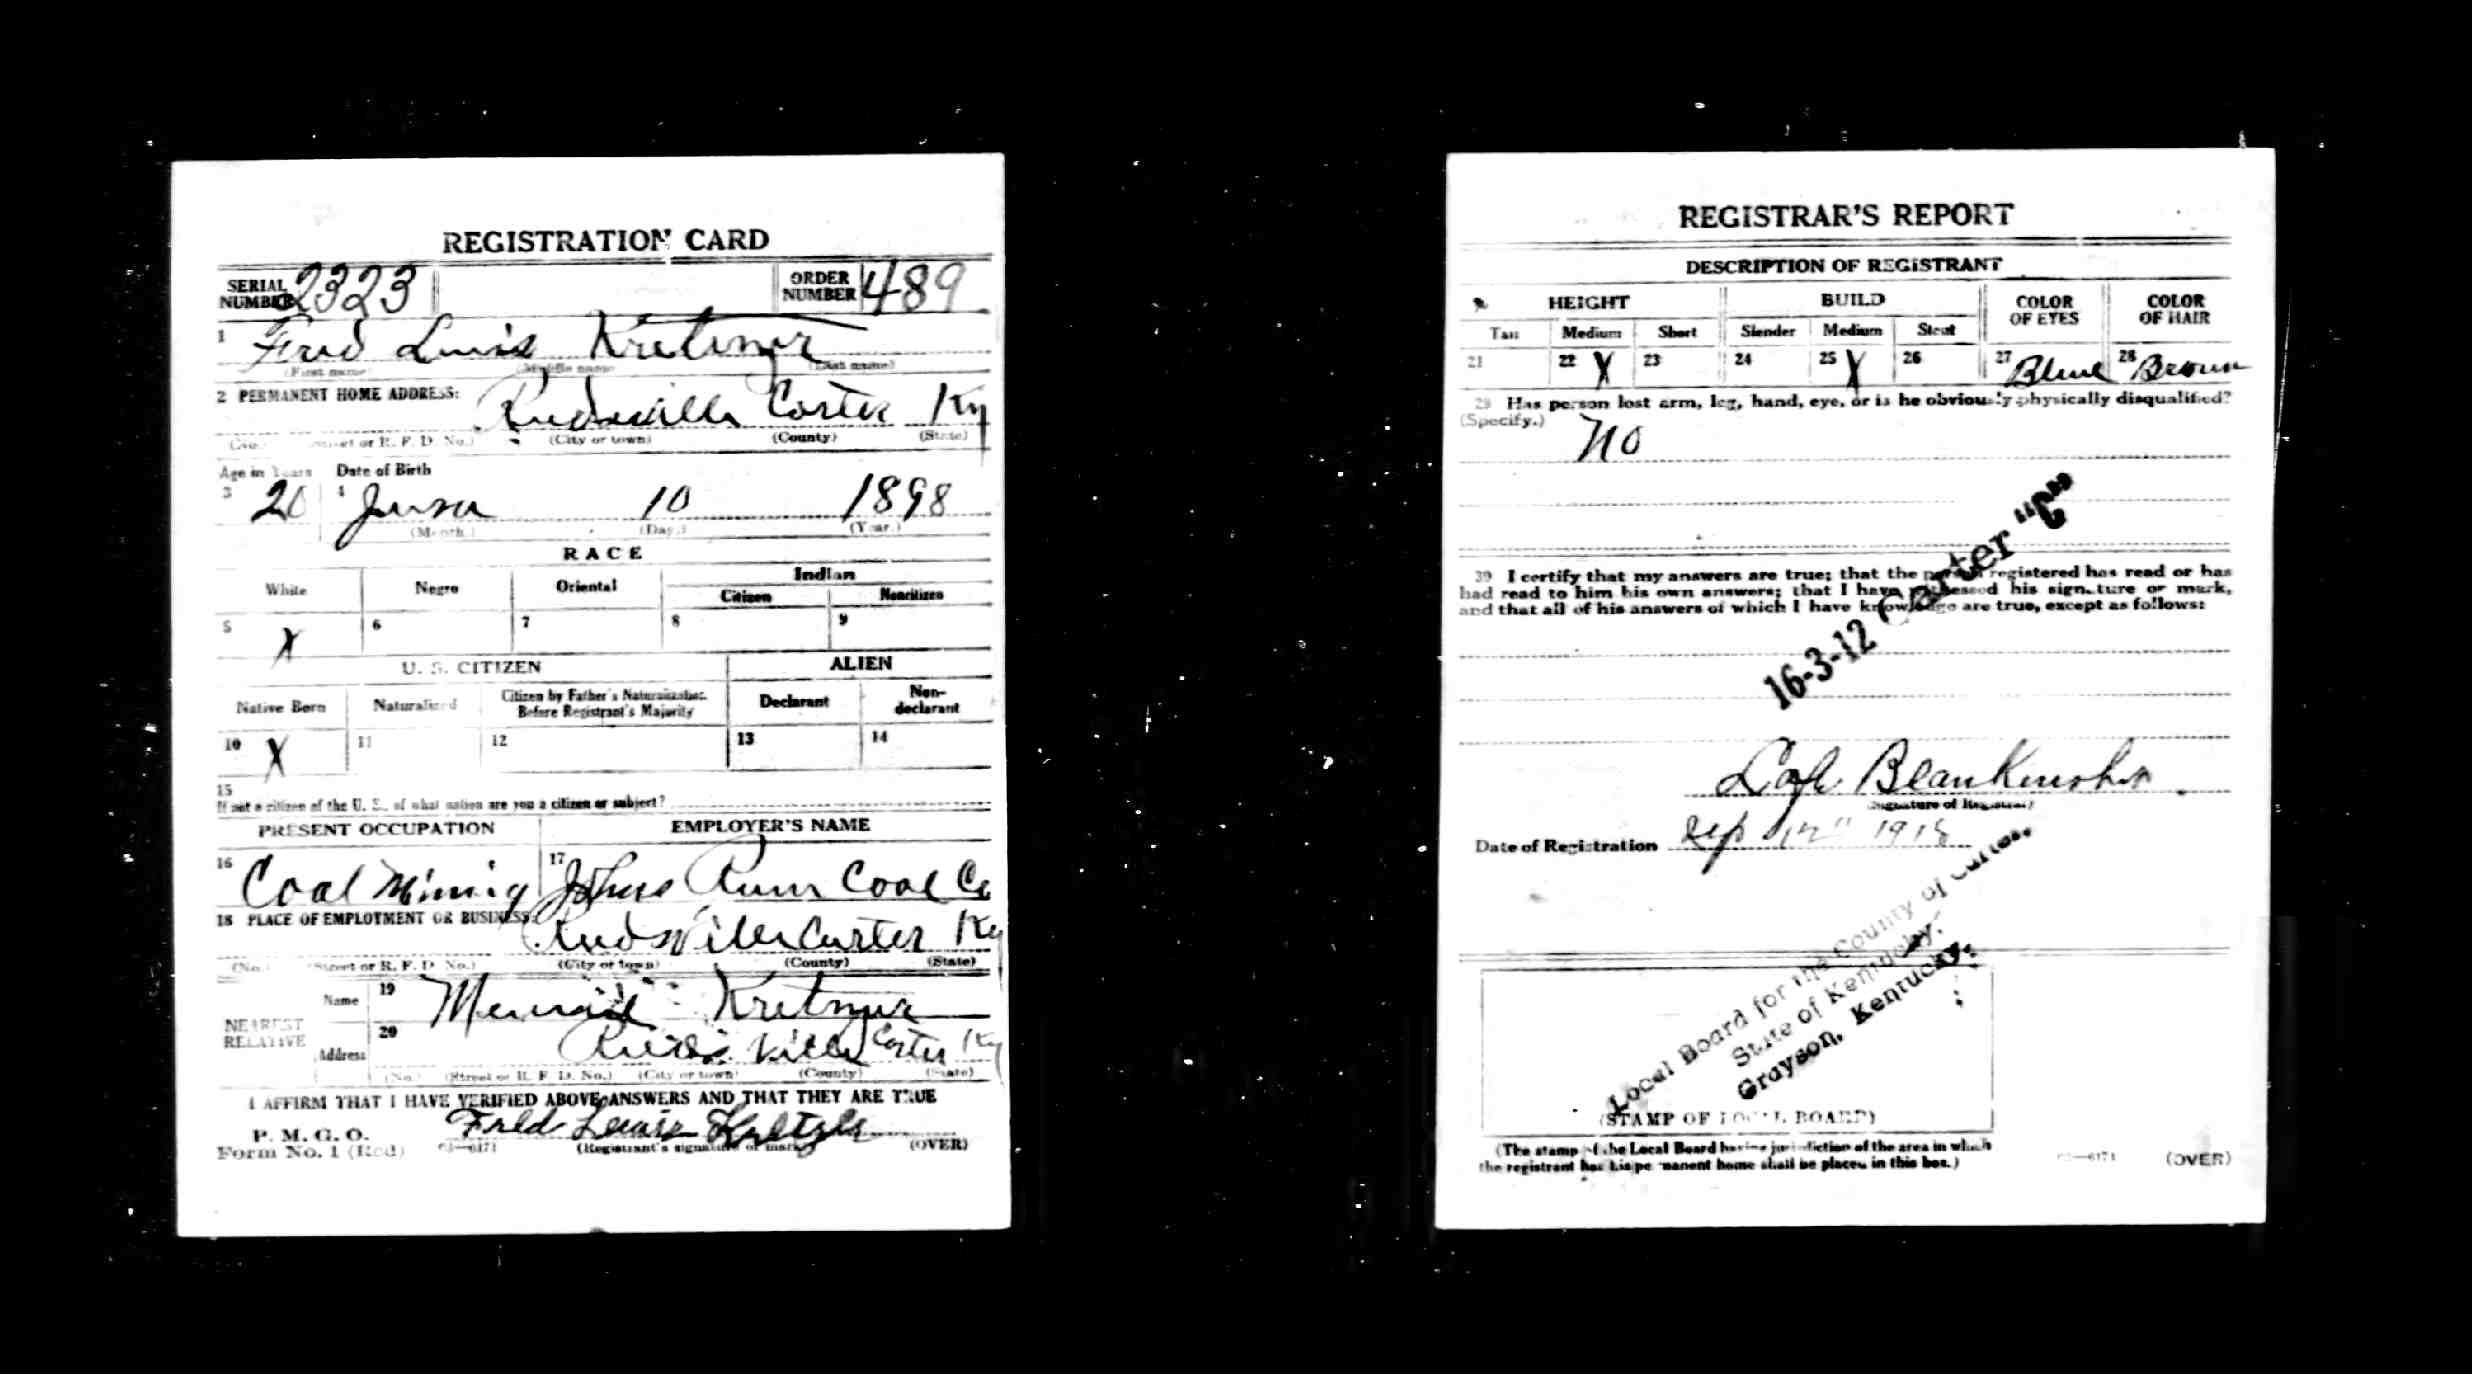 REGISTRATION CARD
SERIAL NUMBER 2323
ORDER NUMBER 489
1 Fred Luis
(First name) (Middle name) (Last name)
2 PERMANENT HOME ADDRESS: Carter Ky
(No.) (Street or R. F. D. No.) (City or town) (County) (State)
Age in Years Date of Birth
3 20 4 10 1898
(Month.) (Day.) (Year.)
RACE
White Negro Oriental Indian
Citizen Noncitizen
5 X 6 7 8 9
U. S. CITIZEN ALIEN
Native Born Naturalized Citizen by Father's Naturalization Before Registrant's Majority Declarant Non-declarant
10 X 11 12 13 14
15
If not a citizen of the U. S., of what nation are you a citizen or subject?
PRESENT OCCUPATION EMPLOYER'S NAME
16 Coal Mining 17 Coal Co
18 PLACE OF EMPLOYMENT OR BUSINESS:
Carter Ky
(No.) (Street or R. F. D. No.) (City or town) (County) (State)
NEAREST RELATIVE
Name 19
Address 20 Carter Ky
(No.) (Street or R. F. D. No.) (City or town) (County) (State)
I AFFIRM THAT I HAVE VERIFIED ABOVE ANSWERS AND THAT THEY ARE TRUE
P. M. G. O.
Form No. 1 (Red) 03—6171 (Registrant's signature or mark) (OVER)
REGISTRAR'S REPORT
DESCRIPTION OF REGISTRANT
HEIGHT BUILD COLOR OF EYES COLOR OF HAIR
Tall Medium Short Slender Medium Stout
21 22 X 23 24 25 X 26 27 Blue 28 Brown
29 Has person lost arm, leg, hand, eye, or is he obviously physically disqualified?
(Specify.) No
30 I certify that my answers are true; that the person registered has read or has
had read to him his own answers; that I have witnessed his signature or mark,
and that all of his answers of which I have knowledge are true, except as follows:
16-3-12 Carter "C"
(Signature of Registrar)
Date of Registration Sep 12" 1918
Local Board for the County of Carter.
State of Kentucky.
Grayson, Kentucky.
(STAMP OF LOCAL BOARD)
(The stamp of the Local Board having jurisdiction of the area in which
the registrant has his permanent home shall be placed in this box.)
03—6171 (OVER)